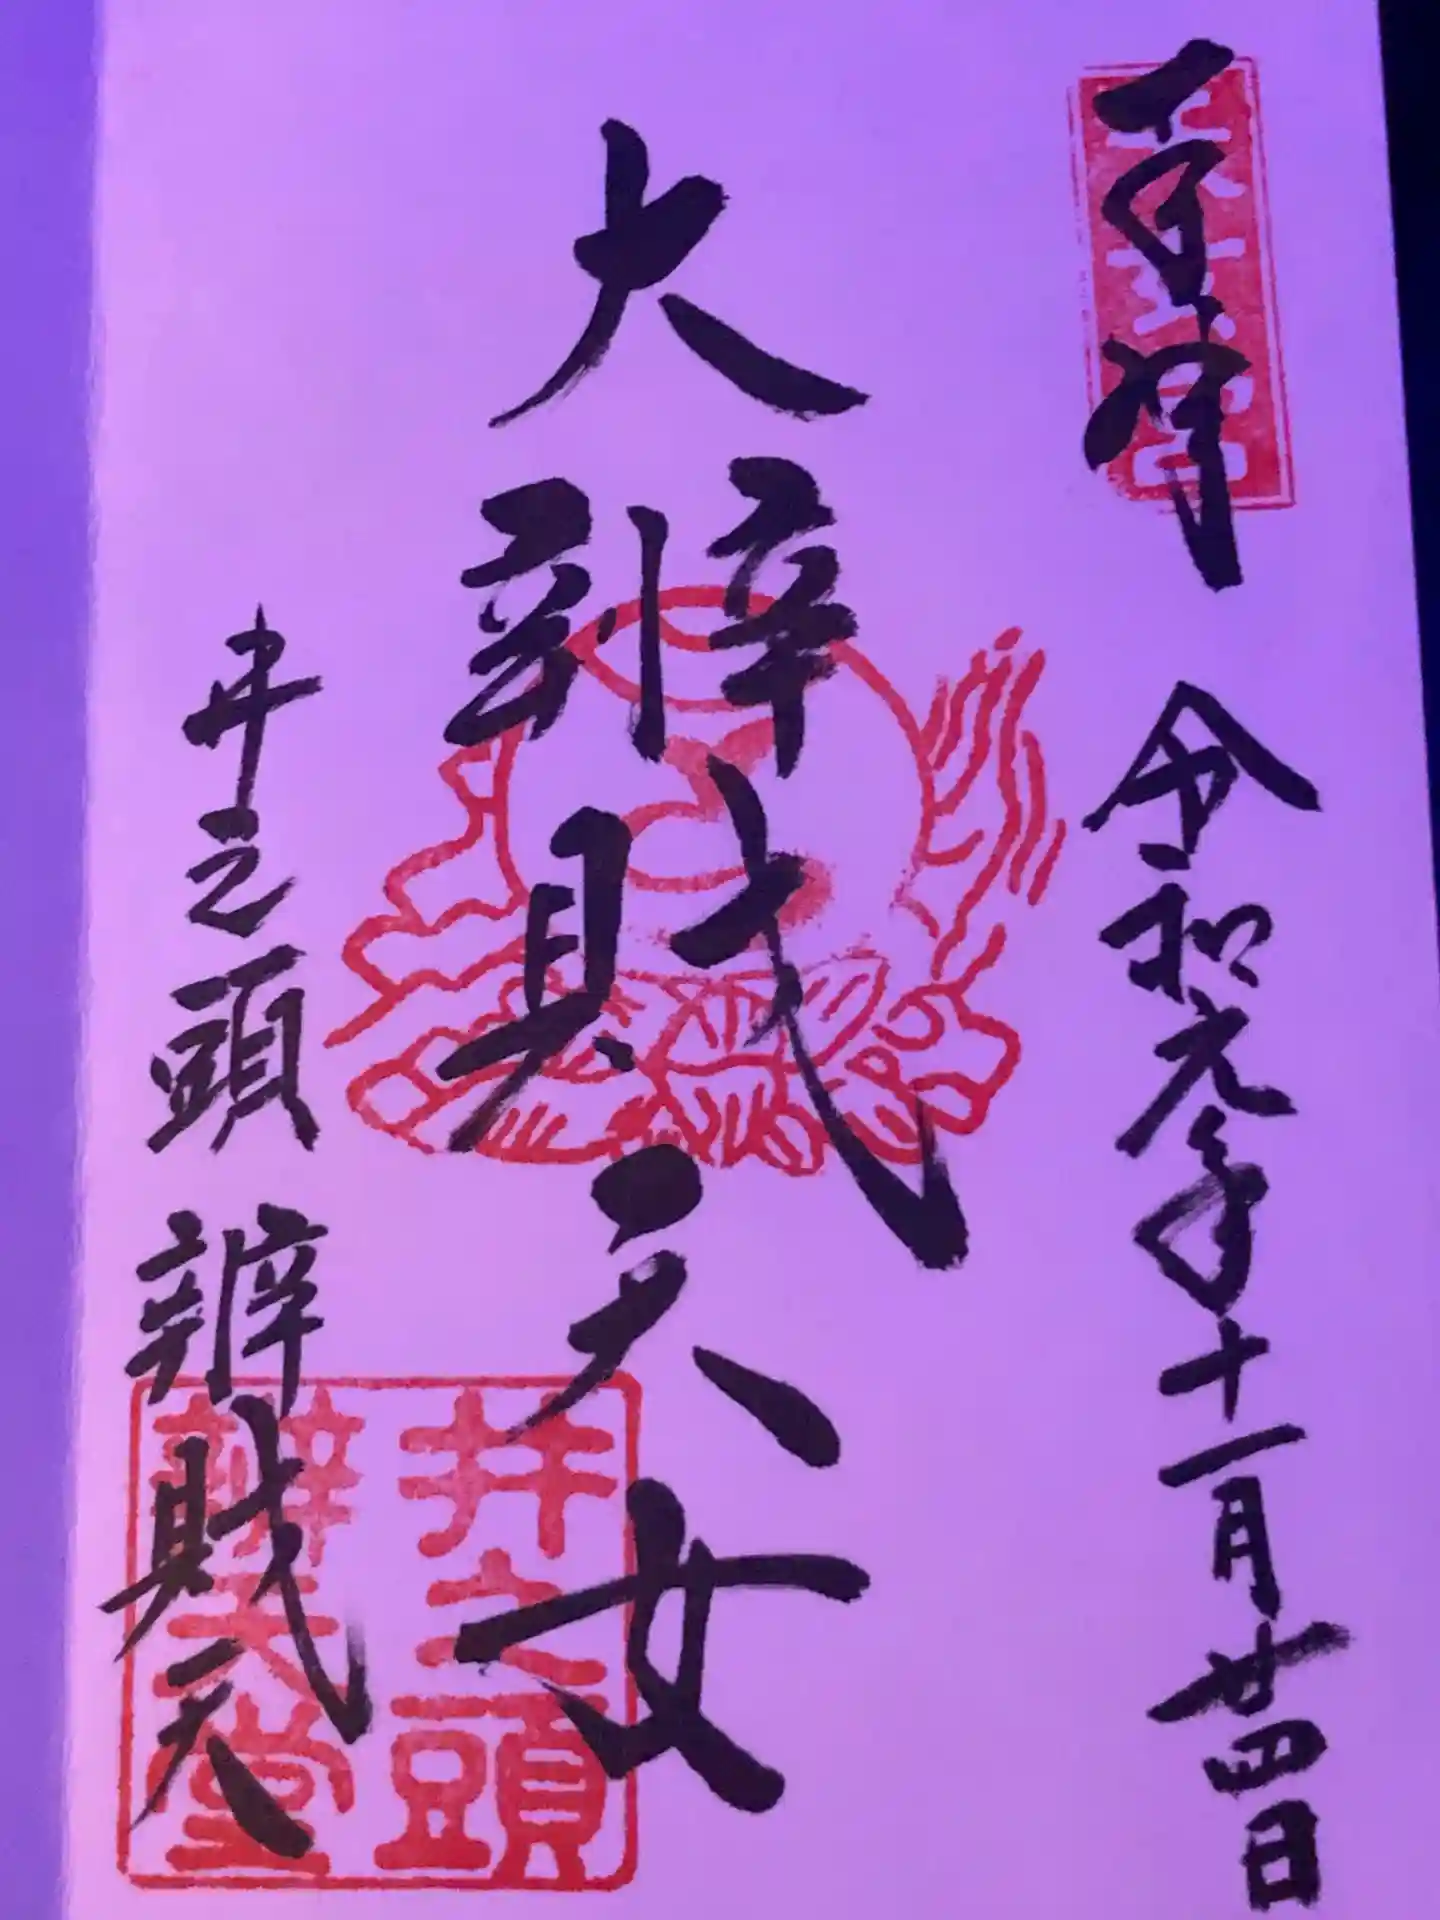 奉拝
令和元年十一月廿四日
大辨財天女
井之頭
辨財天
井之頭
辨天堂